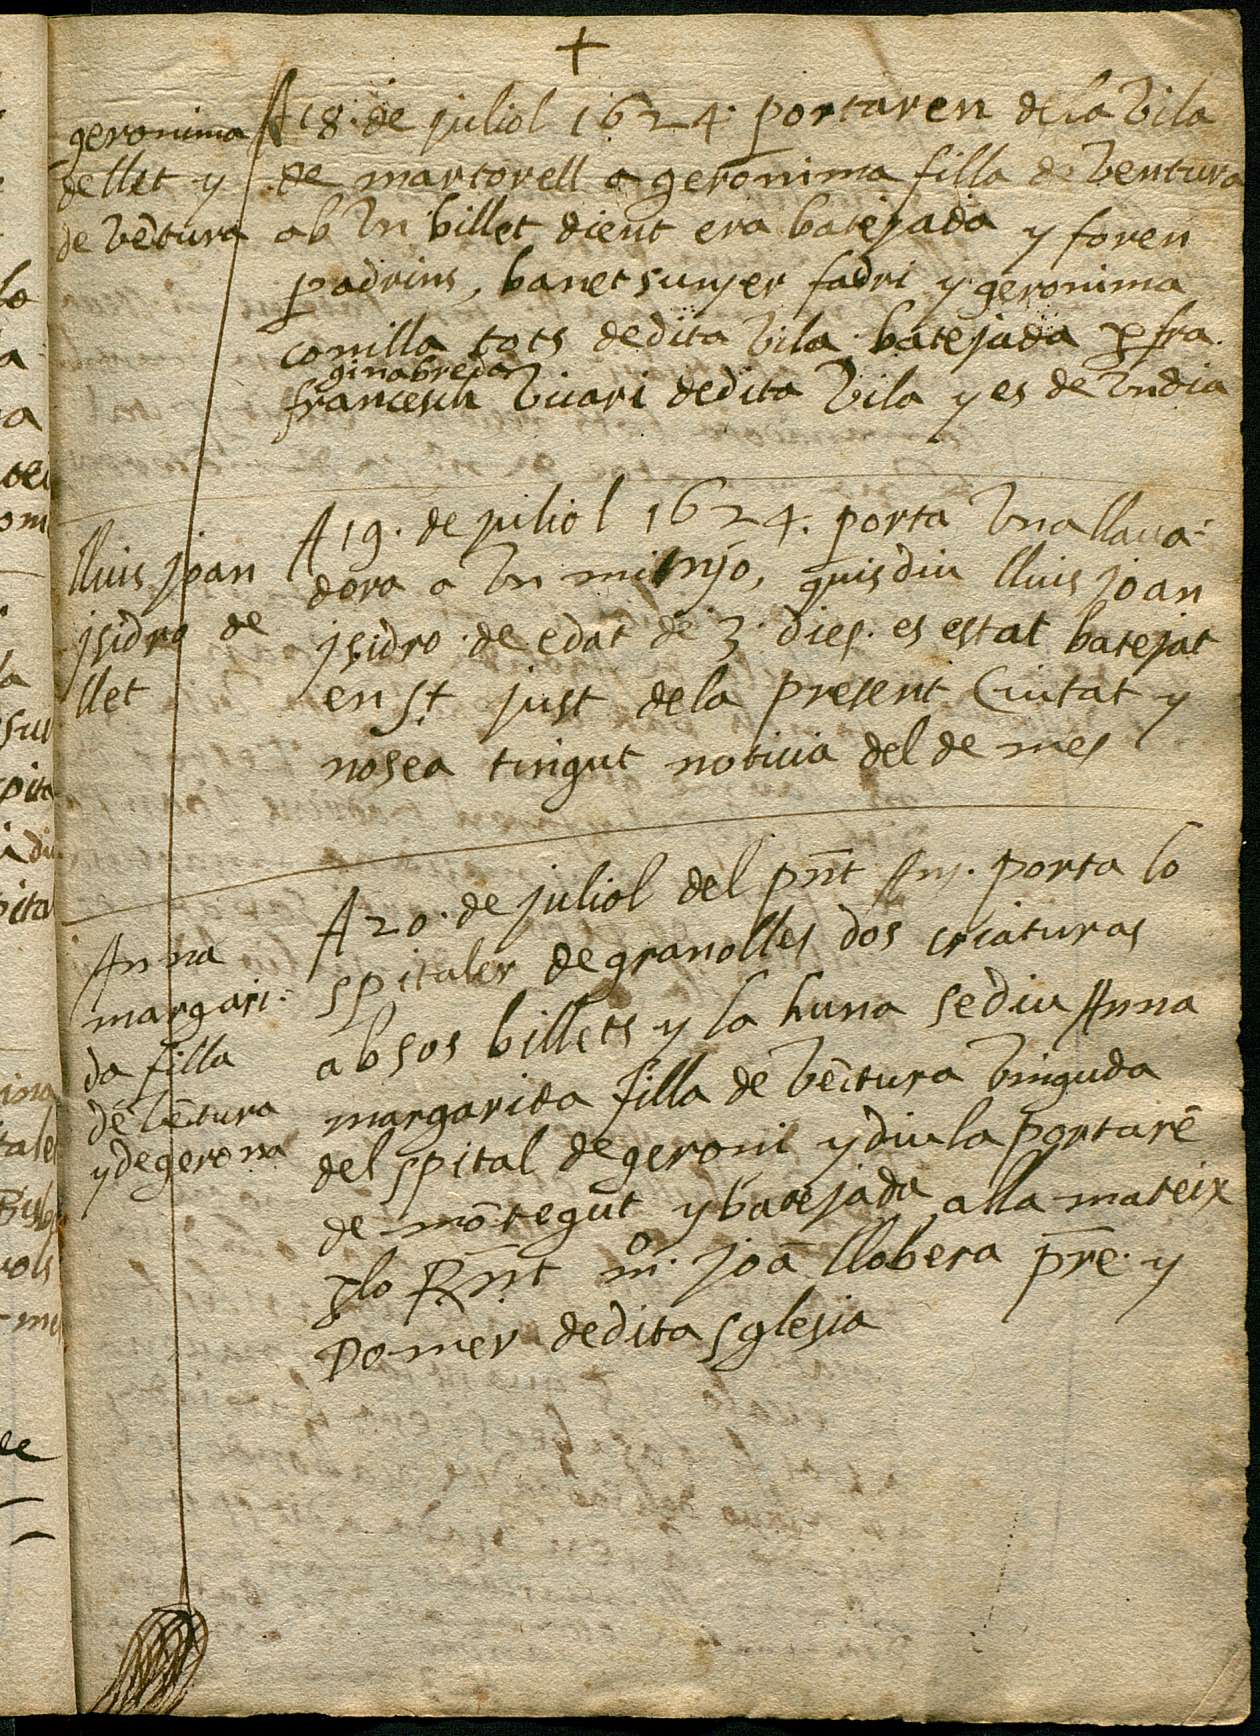 +
geronima
de llet y
de vētura
A 18 · de juliol 1624 · portaren de la vila
de martorell a geronima filla de ventura
ab vn billet dient era batejada y foren
padrins, banet sunyer fadri y geronima
conilla tots de dita vila batejada p fra.
ginabreda
francesch vicari de dita vila y es de vn dia
lluis joan
jsidro de
llet
A 19 · de juliol 1624 · porta vna llaua-
dora a vn minyo, quis diu lluis joan
jsidro · de edat de 3 · dies · es estat batejat
en St just de la present Ciutat y
nosea tingut noticia del de mes
Anna
margari-
da filla
de vētura
y de gerona
A 20 · de juliol del pñt Any · porta lo
spitaler de granolles dos criaturas
ab sos billets y la huna se diu Anna
margarida filla de vētura vinguda
del spital de geroni y diu la portarē
de mōtegut y batejada alla mateix
p lo Rñt mº joā llobera pre · y
Domer de dita sglesia